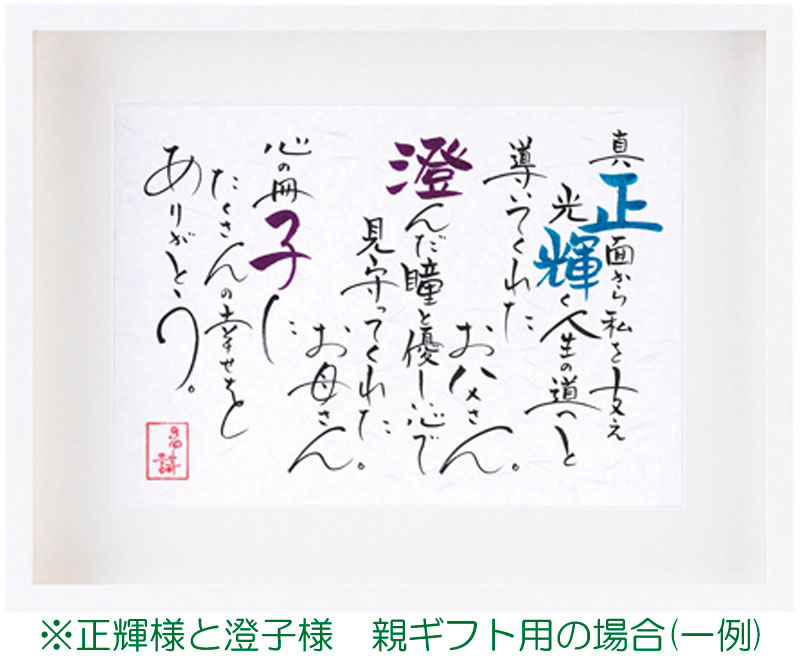 真正面から私を支え
光輝く人生の道へと
導いてくれた
お父さん。
澄んだ瞳と優しい心で
見守ってくれた。
お母さん
心の冊子に
たくさんの幸せを
ありがとう。
※正輝様と澄子様　親ギフト用の場合(一例)